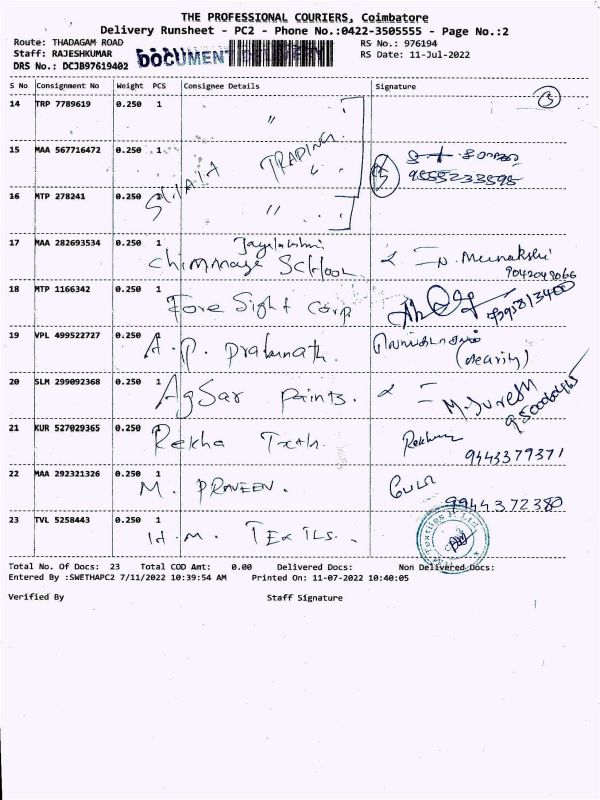 THE PROFESSIONAL COURIERS, Coimbatore
Delivery Runsheet - PC2 - Phone No.:0422-3505555 - Page No.:2
Route: THADAGAM ROAD
Staff: RAJESHKUMAR
DRS No.: DCJB97619402
DOCUMENT
RS No.: 976194
RS Date: 11-Jul-2022
S No Consignment No Weight PCS Consignee Details Signature
14 TRP 7789619 0.250 1 〃
15 MAA 567716472 0.250 1 TRADING 9555233595
16 MTP 278241 0.250 〃
17 MAA 282693534 0.250 1 Jayalakshmi
Chinmaya School N. Meenakshi
9042049066
18 MTP 1166342 0.250 1 Fore Sight Corp
19 VPL 499522727 0.250 A. P. (dearity)
20 SLM 299092368 0.250 AgSar paints. M. Suresh
21 KUR 527029365 0.250 Rekha Textl. Rekha
9443379371
22 MAA 292321326 0.250 1 M. PRAVEEN.
9944372380
23 TVL 5258443 0.250 1 H. M. TExTLs.
Total No. Of Docs: 23 Total COD Amt: 0.00 Delivered Docs: Non Delivered Docs:
Entered By :SWETHAPC2 7/11/2022 10:39:54 AM Printed On: 11-07-2022 10:40:05
Verified By Staff Signature